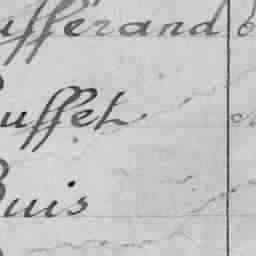 ufférand
Buffet
Buis